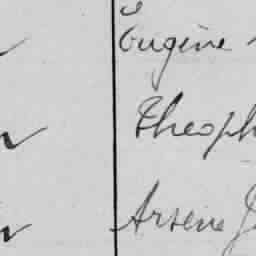 Eugène
Théoph
Arsène J